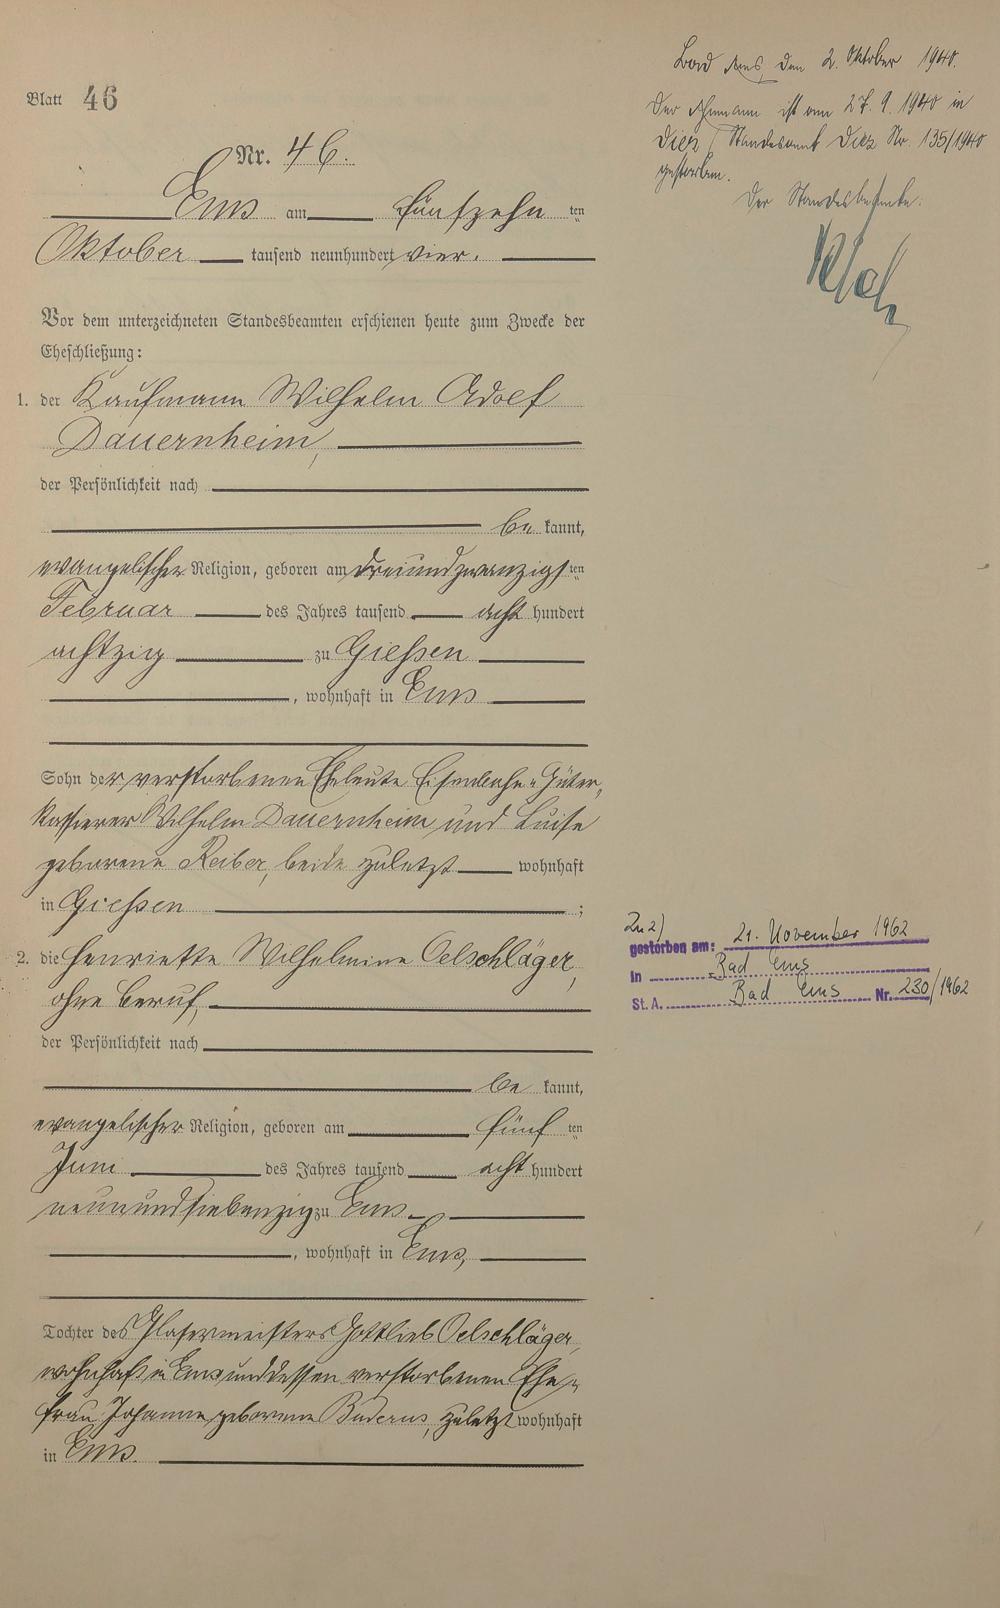 Blatt 46
Nr. 46.
Ems am fünfzehn ten
Oktober tausend neunhundert vier.
Vor dem unterzeichneten Standesbeamten erschienen heute zum Zwecke der
Eheschließung:
1. der Kaufmann Wilhelm Adolf
Dauernheim,
der Persönlichkeit nach
be kannt,
evangelischer Religion, geboren am dreiundzwanzigs ten
Februar des Jahres tausend acht hundert
achtzig zu Giessen
, wohnhaft in Ems
Sohn der verstorbenen Eheleute Eisenbahn-Güter-
kassierer Wilhelm Dauernheim und Luise
geborene Reiber, beide zuletzt wohnhaft
in Giessen ;
2. die Henriette Wilhelmine Oelschläger,
ohne Beruf,
der Persönlichkeit nach
be kannt,
evangelischer Religion, geboren am fünf ten
Juni des Jahres tausend acht hundert
neunundsiebenzig zu Ems
, wohnhaft in Ems,
Tochter des Glasermeisters Gottlieb Oelschläger,
wohnhaft in Ems und dessen verstorbenen Ehe-
frau Johanna geborene Buderus, zuletzt wohnhaft
in Ems.
Bad Ems, den 2. Oktober 1940.
Der Ehemann ist am 27. 9. 1940 in
Diez (Standesamt Diez Nr. 135/1940
gestorben.
Der Standesbeamte.
Zu 2)
gestorben am: 21. November 1962
in Bad Ems
St. A. Bad Ems Nr. 230/1962